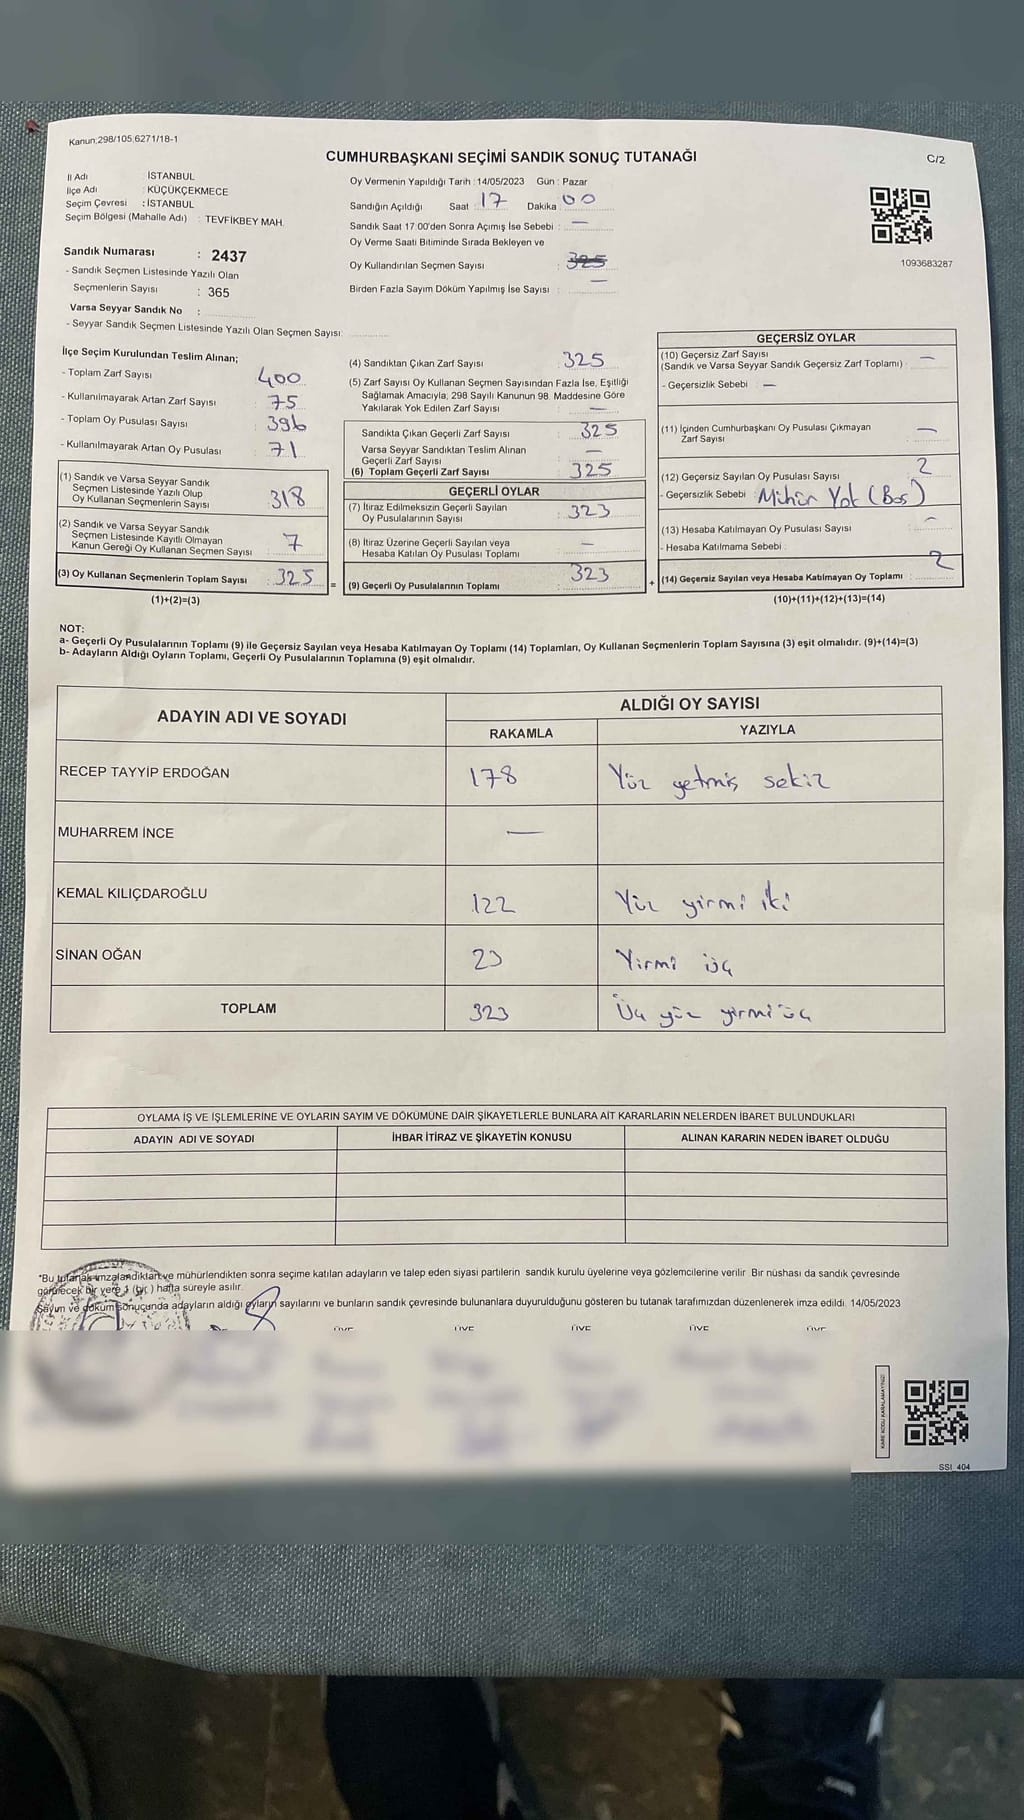 Kanun:298/105.6271/18-1
CUMHURBAŞKANI SEÇİMİ SANDIK SONUÇ TUTANAĞI
C/2
İl Adı İSTANBUL
İlçe Adı : KÜÇÜKÇEKMECE
Seçim Çevresi : İSTANBUL
Seçim Bölgesi (Mahalle Adı) : TEVFİKBEY MAH.
Sandık Numarası : 2437
- Sandık Seçmen Listesinde Yazılı Olan
Seçmenlerin Sayısı : 365
Varsa Seyyar Sandık No :
- Seyyar Sandık Seçmen Listesinde Yazılı Olan Seçmen Sayısı:
Oy Vermenin Yapıldığı Tarih : 14/05/2023 Gün : Pazar
Sandığın Açıldığı Saat : 17 Dakika 00
Sandık Saat 17:00'den Sonra Açımış İse Sebebi : —
Oy Verme Saati Bitiminde Sırada Bekleyen ve
Oy Kullandırılan Seçmen Sayısı : 325
Birden Fazla Sayım Döküm Yapılmış İse Sayısı : —
1093683287
İlçe Seçim Kurulundan Teslim Alınan;
- Toplam Zarf Sayısı 400
- Kullanılmayarak Artan Zarf Sayısı : 75
- Toplam Oy Pusulası Sayısı : 396
- Kullanılmayarak Artan Oy Pusulası : 71
(1) Sandık ve Varsa Seyyar Sandık
Seçmen Listesinde Yazılı Olup
Oy Kullanan Seçmenlerin Sayısı : 318
(2) Sandık ve Varsa Seyyar Sandık
Seçmen Listesinde Kayıtlı Olmayan
Kanun Gereği Oy Kullanan Seçmen Sayısı : 7
(3) Oy Kullanan Seçmenlerin Toplam Sayısı : 325
(1)+(2)=(3)
(4) Sandıktan Çıkan Zarf Sayısı : 325
(5) Zarf Sayısı Oy Kullanan Seçmen Sayısından Fazla İse, Eşitliği
Sağlamak Amacıyla; 298 Sayılı Kanunun 98. Maddesine Göre
Yakılarak Yok Edilen Zarf Sayısı : —
Sandıkta Çıkan Geçerli Zarf Sayısı : 325
Varsa Seyyar Sandıktan Teslim Alınan
Geçerli Zarf Sayısı : —
(6) Toplam Geçerli Zarf Sayısı : 325
GEÇERLİ OYLAR
(7) İtiraz Edilmeksizin Geçerli Sayılan
Oy Pusulalarının Sayısı : 323
(8) İtiraz Üzerine Geçerli Sayılan veya
Hesaba Katılan Oy Pusulası Toplamı : —
= (9) Geçerli Oy Pusulalarının Toplamı : 323
GEÇERSİZ OYLAR
(10) Geçersiz Zarf Sayısı
(Sandık ve Varsa Seyyar Sandık Geçersiz Zarf Toplamı) : —
- Geçersizlik Sebebi : —
(11) İçinden Cumhurbaşkanı Oy Pusulası Çıkmayan
Zarf Sayısı : —
(12) Geçersiz Sayılan Oy Pusulası Sayısı : 2
- Geçersizlik Sebebi : Mühür Yok (Boş)
(13) Hesaba Katılmayan Oy Pusulası Sayısı : —
- Hesaba Katılmama Sebebi :
+ (14) Geçersiz Sayılan veya Hesaba Katılmayan Oy Toplamı : 2
(10)+(11)+(12)+(13)=(14)
NOT:
a- Geçerli Oy Pusulalarının Toplamı (9) ile Geçersiz Sayılan veya Hesaba Katılmayan Oy Toplamı (14) Toplamları, Oy Kullanan Seçmenlerin Toplam Sayısına (3) eşit olmalıdır. (9)+(14)=(3)
b- Adayların Aldığı Oyların Toplamı, Geçerli Oy Pusulalarının Toplamına (9) eşit olmalıdır.
ADAYIN ADI VE SOYADI
ALDIĞI OY SAYISI
RAKAMLA YAZIYLA
RECEP TAYYİP ERDOĞAN 178 Yüz yetmiş sekiz
MUHARREM İNCE —
KEMAL KILIÇDAROĞLU 122 Yüz yirmi iki
SİNAN OĞAN 23 Yirmi üç
TOPLAM 323 Üç yüz yirmi üç
OYLAMA İŞ VE İŞLEMLERİNE VE OYLARIN SAYIM VE DÖKÜMÜNE DAİR ŞİKAYETLERLE BUNLARA AİT KARARLARIN NELERDEN İBARET BULUNDUKLARI
ADAYIN ADI VE SOYADI İHBAR İTİRAZ VE ŞİKAYETİN KONUSU ALINAN KARARIN NEDEN İBARET OLDUĞU
*Bu tutanak imzalandıktan ve mühürlendikten sonra seçime katılan adayların ve talep eden siyasi partilerin sandık kurulu üyelerine ve gözlemcilerine verilir. Bir nüshası da sandık çevresinde
görülecek bir yere 1 (bir) hafta süreyle asılır.
Sayım ve döküm sonucunda adayların aldığı oyların sayılarını ve bunların sandık çevresinde bulunanlara duyurulduğunu gösteren bu tutanak tarafımızdan düzenlenerek imza edildi. 14/05/2023
ÜYE ÜYE ÜYE ÜYE ÜYE
KARE KODU KARALAMAYINIZ!
SSI_404